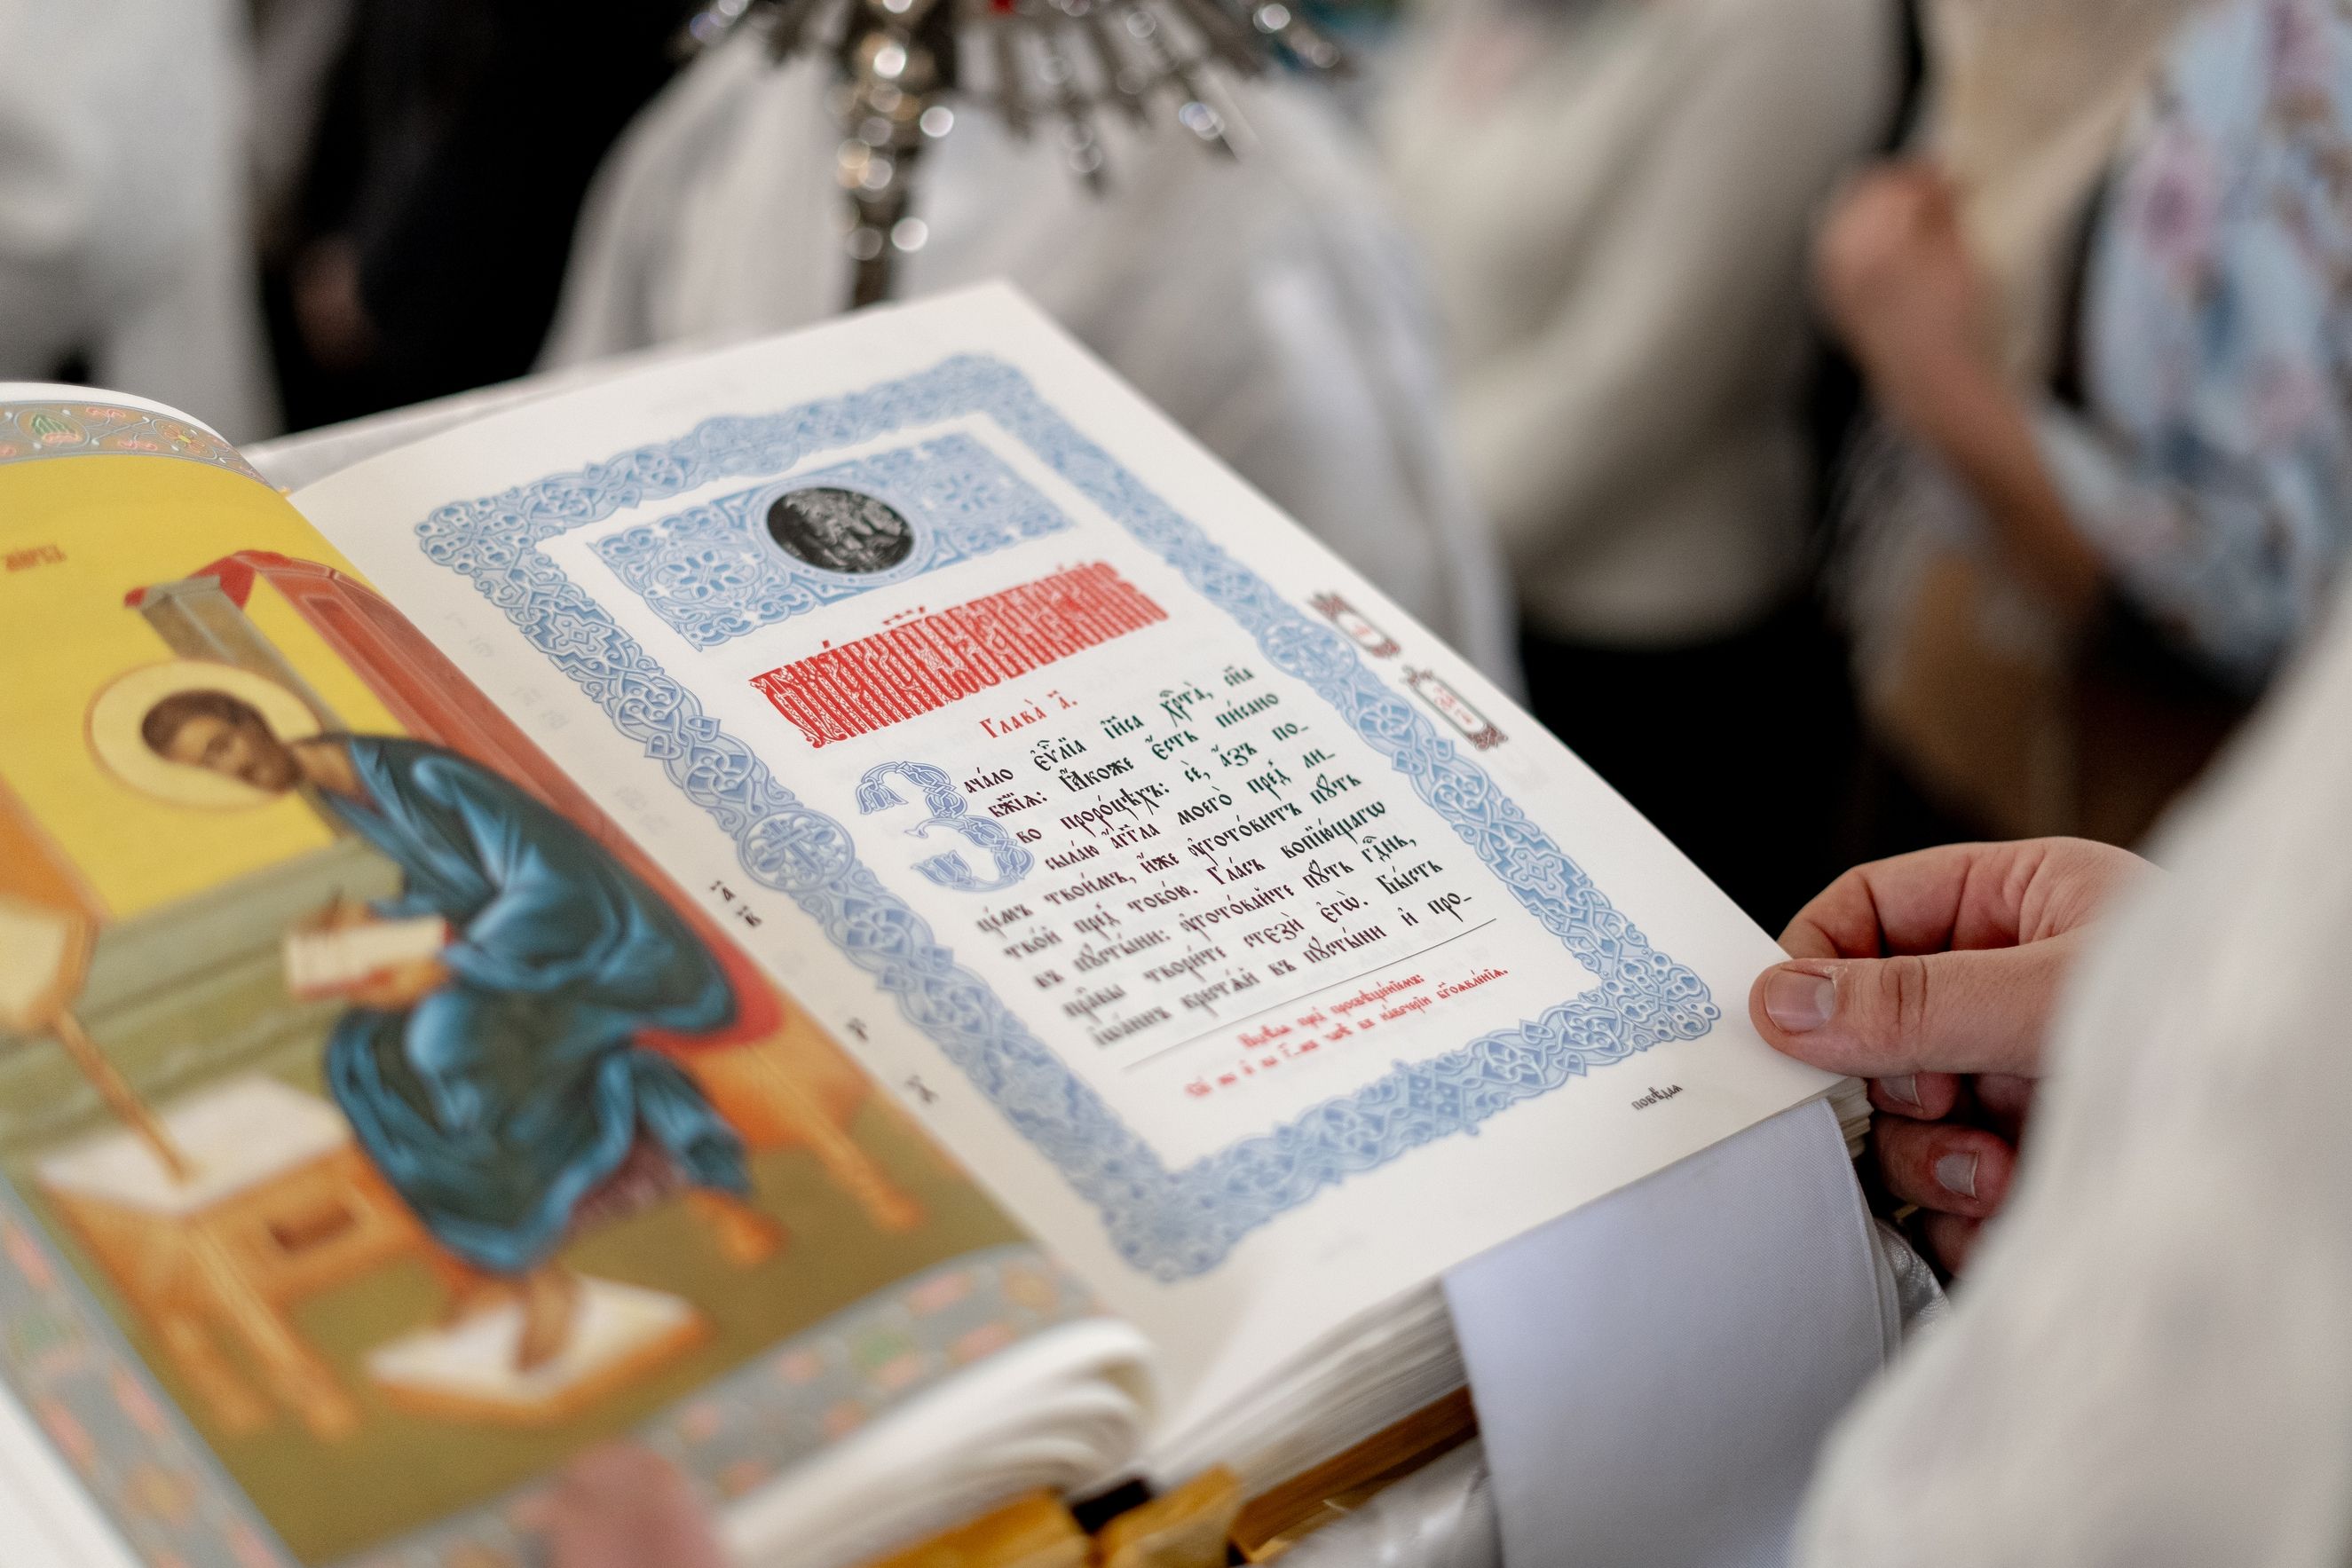 Глава̀ а҃.
Зача́ло є҆ѵⷢ҇лїа і҆и҃са хрⷭ҇та̀, сн҃а
бж҃їѧ: ꙗ҆́коже є҆́сть пи́сано
во проро́цѣхъ: сѐ, а҆́зъ по-
сыла́ю а҆́гг҃ла моего̀ пред̾ ли-
це́мъ твои́мъ, и҆́же ᲂу҆гото́витъ пꙋ́ть
тво́й пред̾ тобо́ю. Гла́съ вопїю́щагѡ
въ пꙋсты́ни: ᲂу҆гото́вайте пꙋ́ть гдⷭ҇ень,
пра̑вы твори́те стєзѝ є҆гѡ̀. Бы́сть
і҆ѡа́ннъ крⷭ҇тѧ́й въ пꙋсты́ни и҆ про-
повѣ́даѧ
а҃
в҃
г҃
д҃